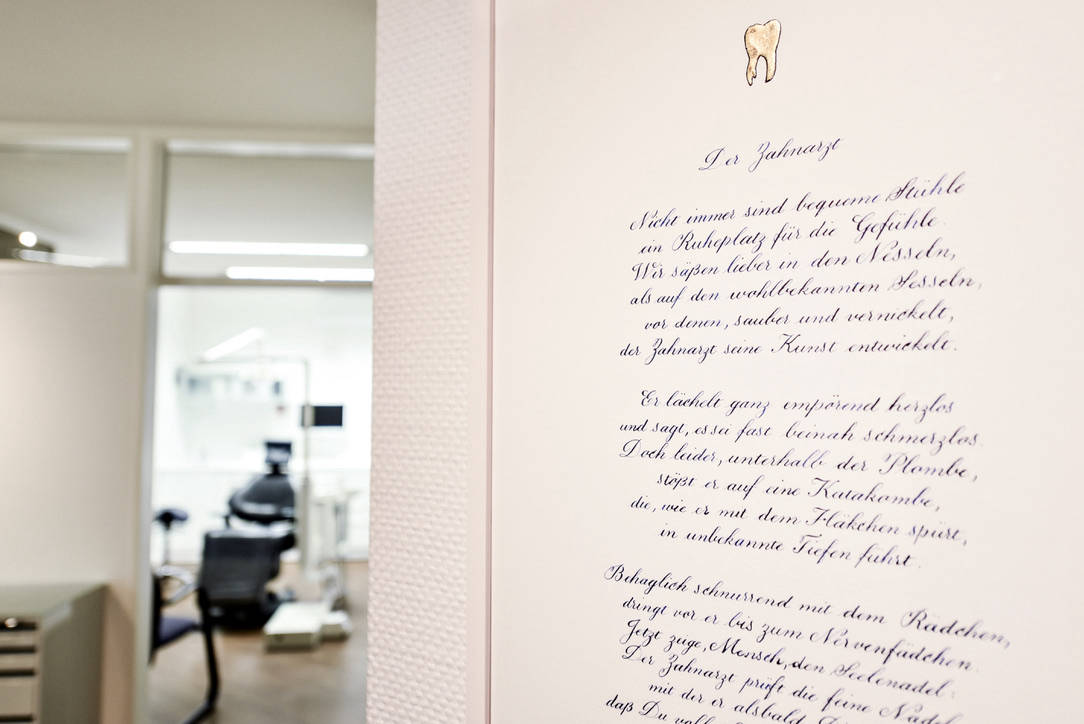 Der Zahnarzt
Nicht immer sind bequeme Stühle
ein Ruheplatz für die Gefühle.
Wir säßen lieber in den Nesseln,
als auf den wohlbekannten Sesseln,
vor denen, sauber und vernickelt,
der Zahnarzt seine Kunst entwickelt.
Er lächelt ganz empörend herzlos
und sagt, es sei fast beinah schmerzlos.
Doch leider, unterhalb der Plombe,
stößt er auf eine Katakombe,
die, wie er mit dem Häkchen spürt,
in unbekannte Tiefen führt.
Behaglich schnurrend mit dem Rädchen,
dringt vor er bis zum Nervenfädchen.
Jetzt zeige, Mensch, den Seelenadel:
Der Zahnarzt prüft die feine Nadel
mit der er alsbald
daß Du